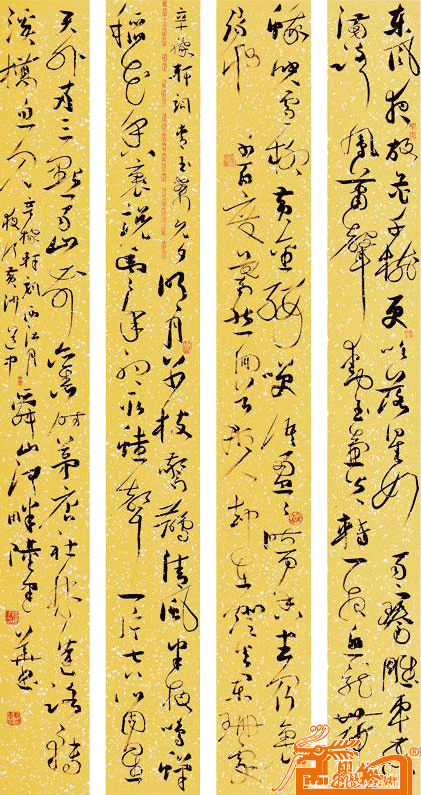 东风夜放花千树更吹落星如雨宝马雕车香
满路凤箫声动玉壶光转一夜鱼龙舞
蛾儿雪柳黄金缕笑语盈盈暗香去众里
寻他千百度蓦然回首那人却在灯火阑珊处
辛稼轩词青玉案元夕 明月别枝惊鹊清风半夜鸣蝉
稻花香里说丰年听取蛙声一片七八个星
天外两三点雨山前旧时茅店社林边路转
溪桥忽见 辛稼轩词西江月
夜行黄沙道中